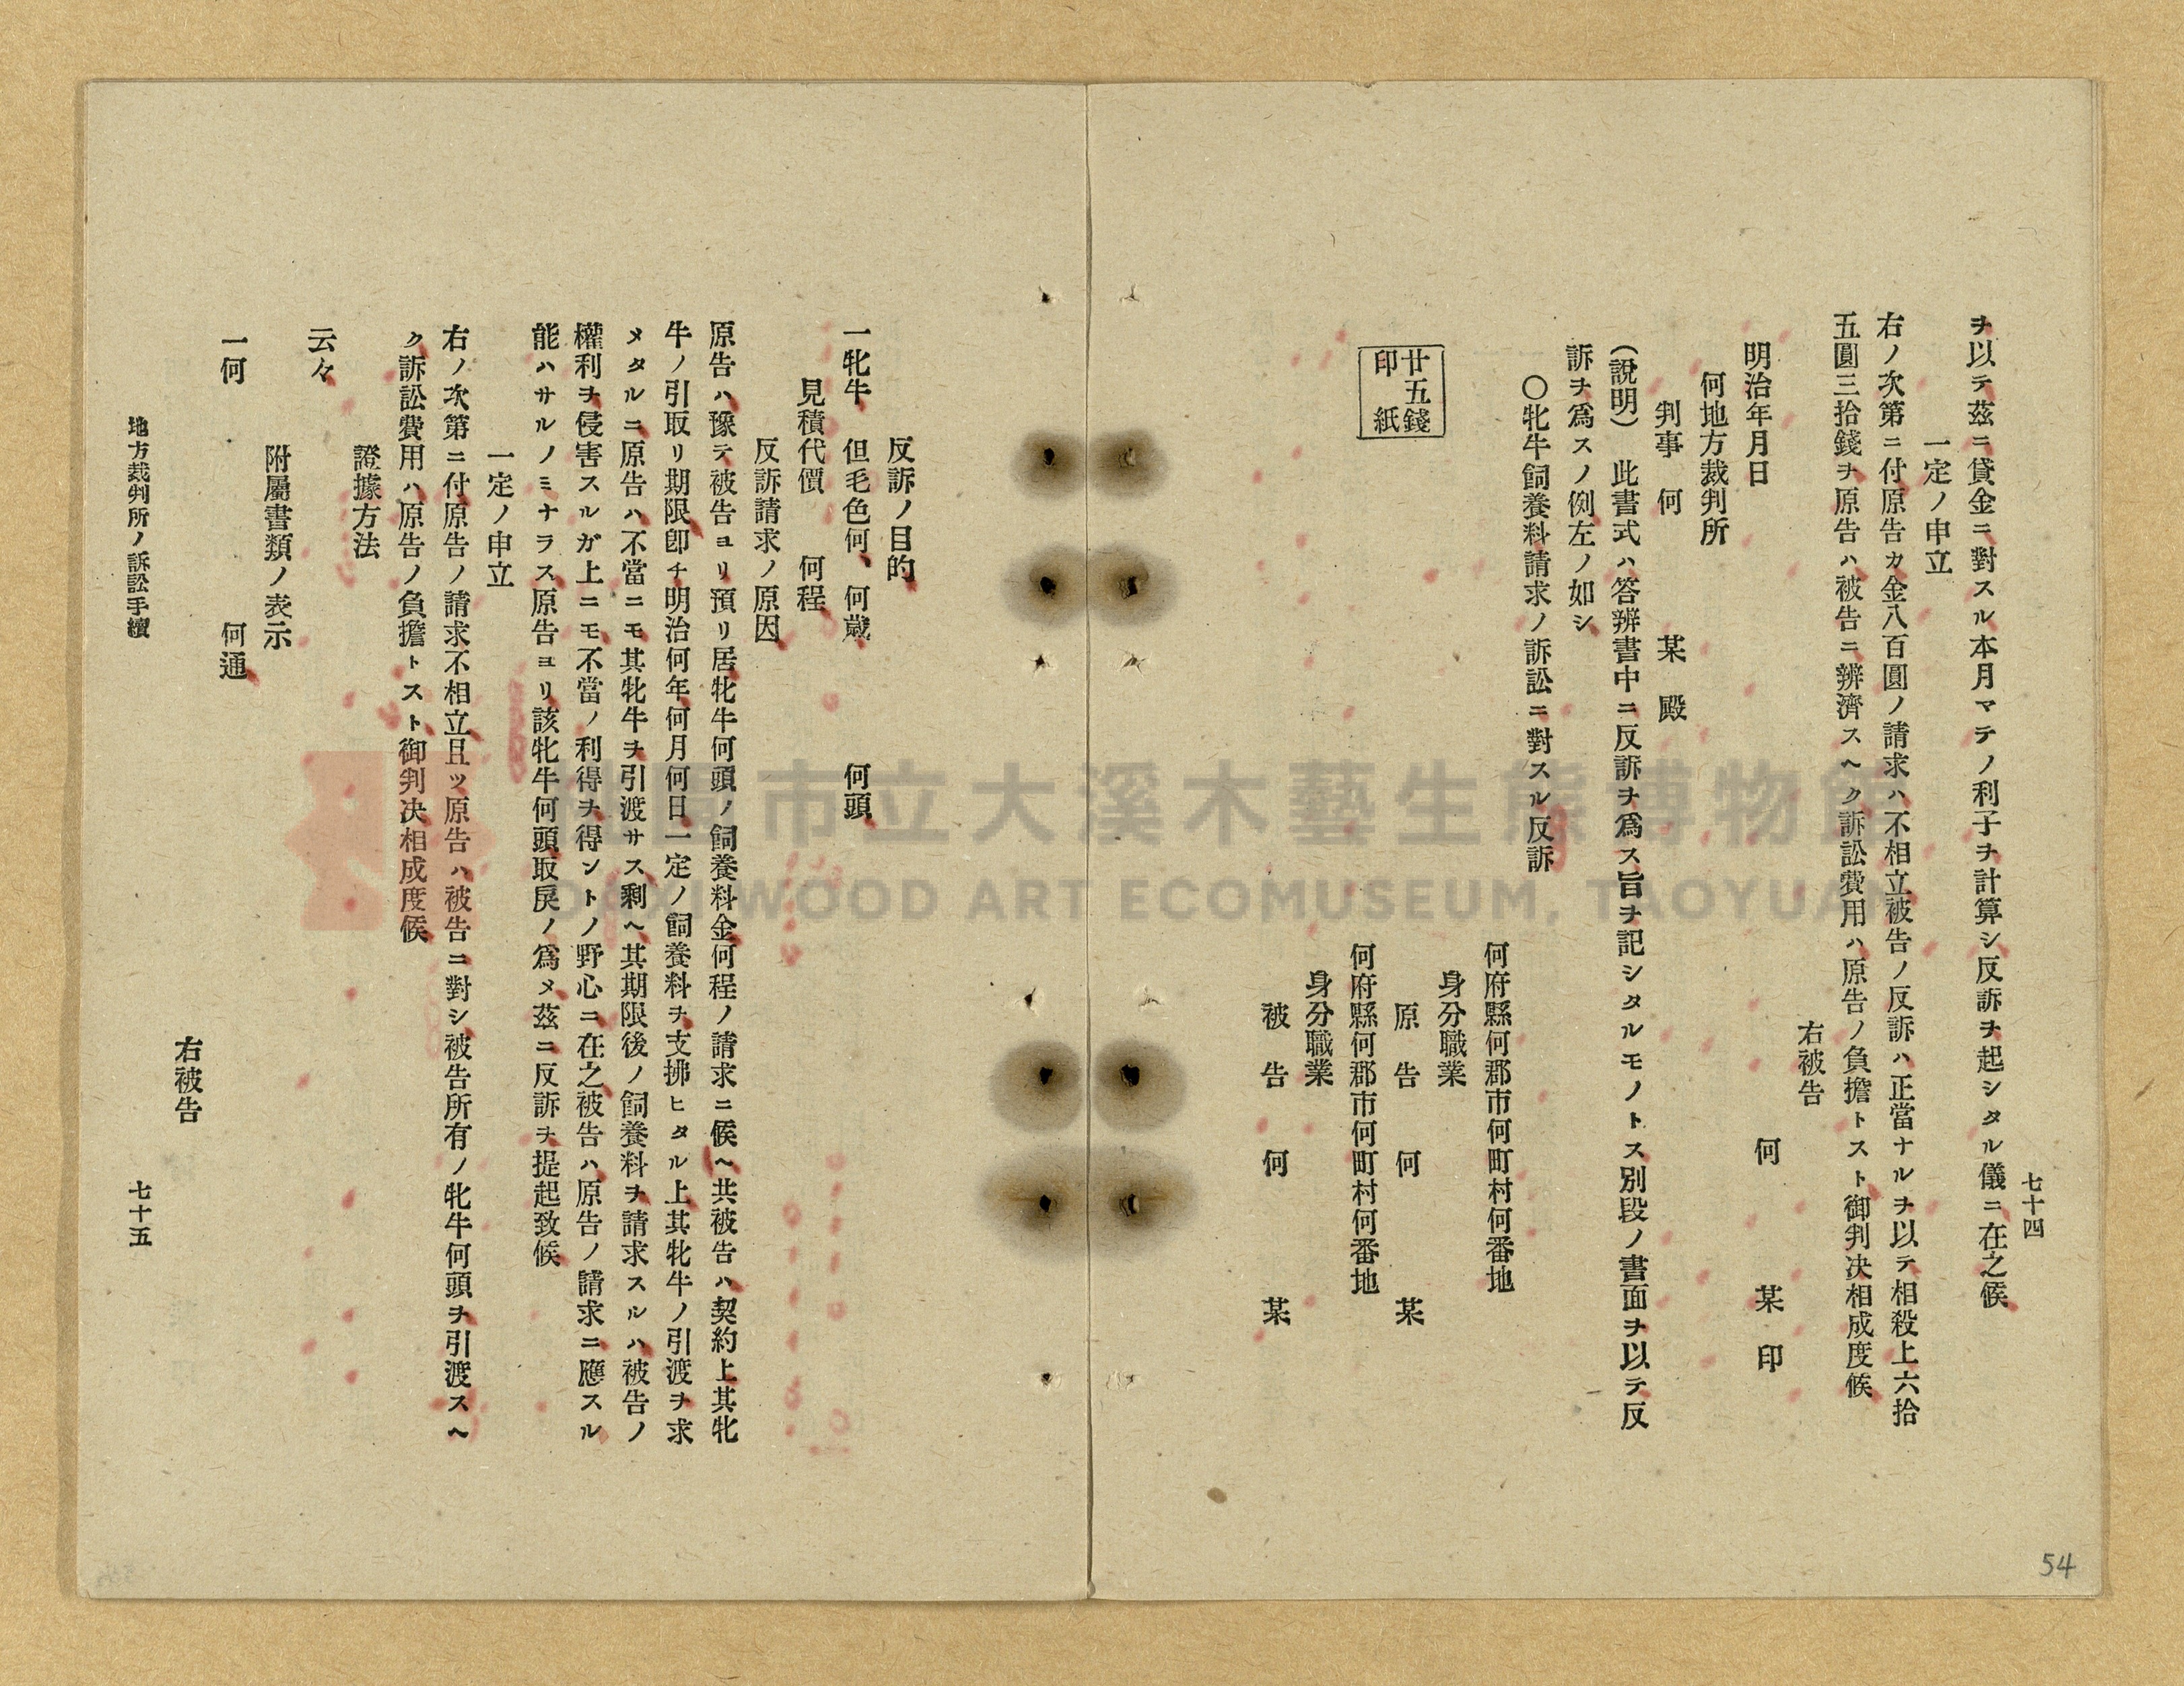 七十四
ヲ以テ茲ニ貸金ニ對スル本月マテノ利子ヲ計算シ反訴ヲ起シタル儀ニ在之候
一定ノ申立
右ノ次第ニ付原告カ金八百圓ノ請求ハ不相立被告ノ反訴ハ正當ナルヲ以テ相殺上六拾
五圓三拾錢ヲ原告ハ被告ニ辨濟スヘク訴訟費用ハ原告ノ負擔トスト御判决相成度候
右被告
明治年月日 何 某 印
何地方裁判所
判事 何 某 殿
(說明) 此書式ハ答辨書中ニ反訴ヲ爲ス旨ヲ記シタルモノトス別段ノ書面ヲ以テ反
訴ヲ爲スノ例左ノ如シ
○牝牛飼養料請求ノ訴訟ニ對スル反訴
何府縣何郡市何町村何番地
身分職業
廿五錢
印紙
原告 何 某
何府縣何郡市何町村何番地
身分職業
被告 何 某
反訴ノ目的
一牝牛 但毛色何、何歲 何頭
見積代價 何程
反訴請求ノ原因
原告ハ豫テ被告ヨリ預リ居牝牛何頭ノ飼養料金何程ノ請求ニ候ヘ共被告ハ契約上其牝
牛ノ引取リ期限卽チ明治何年何月何日一定ノ飼養料ヲ支拂ヒタル上其牝牛ノ引渡ヲ求
メタルニ原告ハ不當ニモ其牝牛ヲ引渡サス剩ヘ其期限後ノ飼養料ヲ請求スルハ被告ノ
權利ヲ侵害スルガ上ニモ不當ノ利得ヲ得ントノ野心ニ在之被告ハ原告ノ請求ニ應スル
能ハサルノミナラス原告ヨリ該牝牛何頭取戾ノ爲メ茲ニ反訴ヲ提起致候
一定ノ申立
右ノ次第ニ付原告ノ請求不相立且ツ原告ハ被告ニ對シ被告所有ノ牝牛何頭ヲ引渡スヘ
ク訴訟費用ハ原告ノ負擔トスト御判决相成度候
證據方法
云々
附屬書類ノ表示
一何 何通
右被告
地方裁判所ノ訴訟手續
七十五
54
市立大溪木藝生態博物館
DAXI WOOD ART ECOMUSEUM, TAOYUAN